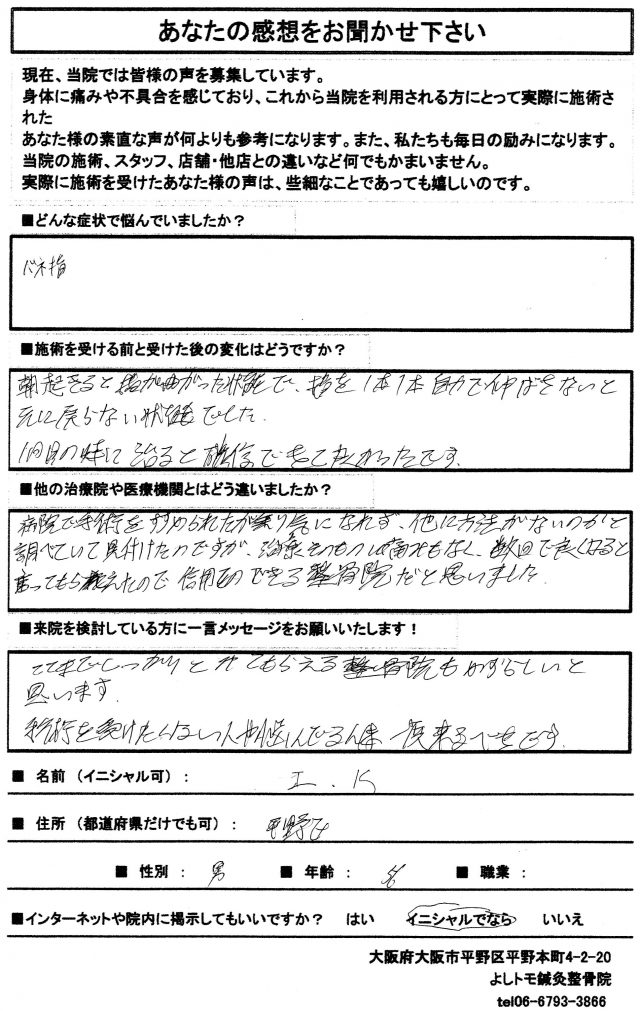 あなたの感想をお聞かせ下さい
現在、当院では皆様の声を募集しています。
身体に痛みや不具合を感じており、これから当院を利用される方にとって実際に施術さ
れた
あなた様の素直な声が何よりも参考になります。また、私たちも毎日の励みになります。
当院の施術、スタッフ、店舗・他店との違いなど何でもかまいません。
実際に施術を受けたあなた様の声は、些細なことであっても嬉しいのです。
■どんな症状で悩んでいましたか？
バネ指
■施術を受ける前と受けた後の変化はどうですか？
朝起きると指が曲がった状態で、指を1本1本自力で伸ばさないと
元に戻らない状態でした.
1回目の時に治ると確信できてよかったです.
■他の治療院や医療機関とはどう違いましたか？
病院で手術を勧められたが乗り気になれず、他に方法がないのかと
調べていて見付けたのですが、治療そのものは痛みもなく、数回で良くなると
言ってもらえたので信用のできる整骨院だと思いました.
■来院を検討している方に一言メッセージをお願いいたします！
ここまでしっかりとみてもらえる整骨院もめずらしいと
思います.
手術を受けたくない人や悩んでる人は一度来るべきです.
■ 名前（イニシャル可）：　I . K
■ 住所（都道府県だけでも可）：　平野区
■ 性別：　男　■ 年齢：　■ 職業：
■インターネットや院内に掲示してもいいですか？　はい　イニシャルでなら　いいえ
大阪府大阪市平野区平野本町4-2-20
よしトモ鍼灸整骨院
tel06-6793-3866